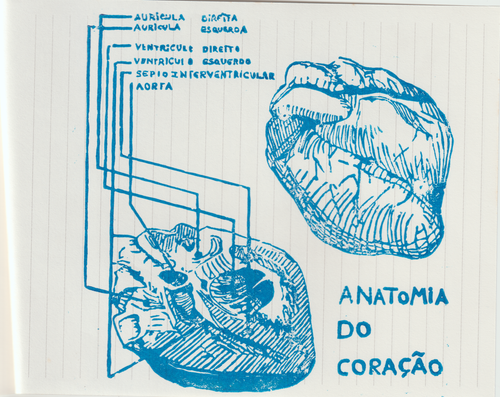 AURÍCULA DIREITA
AURÍCULA ESQUERDA
VENTRICULE DIREITO
VENTRICULO ESQUERDO
SEPIO INTERVENTRICULAR
AORTA
ANATOMIA
DO
CORAÇÃO